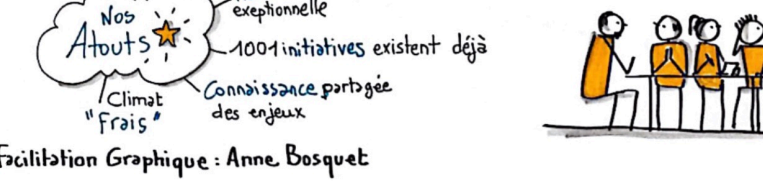 exeptionnelle
Nos
Atouts
1001 initiatives existent déjà
Connaissance partagée
des enjeux
Climat
"Frais"
Facilitation Graphique : Anne Bosquet